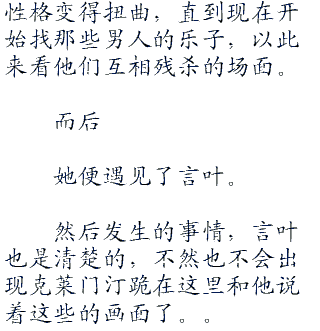 性格变得扭曲，直到现在开
始找那些男人的乐子，以此
来看他们互相残杀的场面。
而后
她便遇见了言叶。
然后发生的事情，言叶
也是清楚的，不然也不会出
现克莱门汀跪在这里和他说
着这些的画面了。。